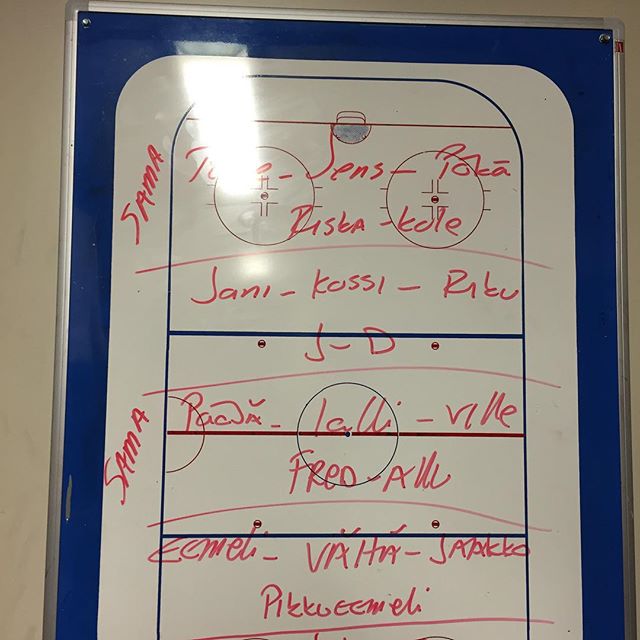 SAMA
Jens - Pökä
Riska - Kole
Jani - Kossi - Riku
J - D
SAMA
Lalli - Ville
FRED - Allu
EEMELI - VÄHÄ - JAAKKO
PIKKUEEMELI